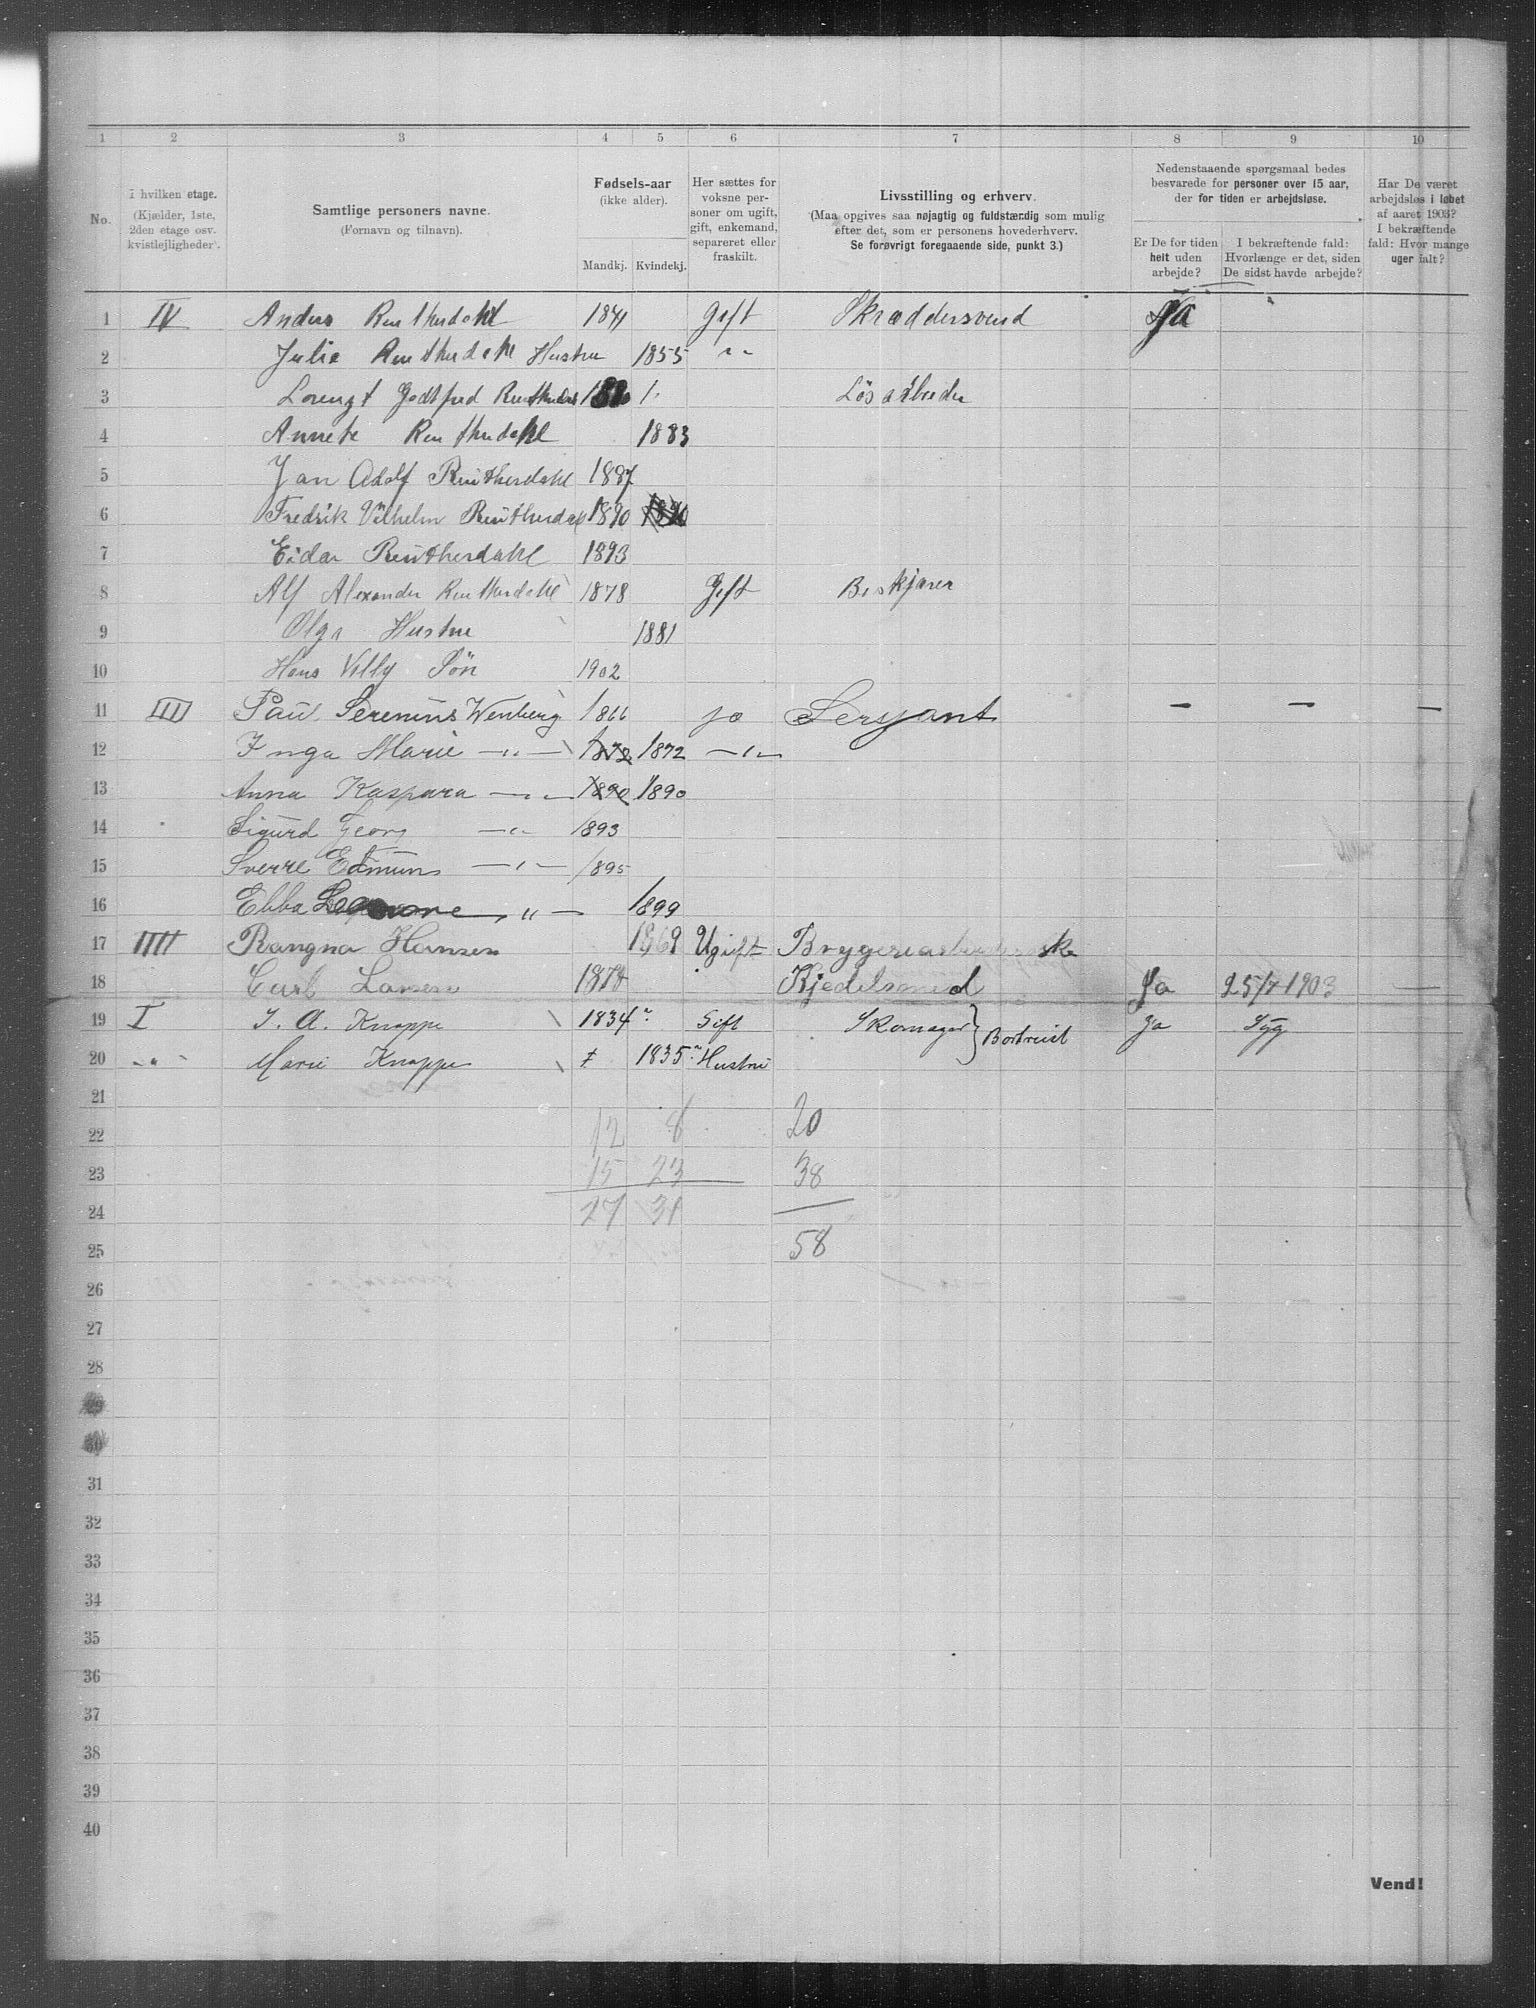 1 2 3 4 5 6 7 8 9 10
No.
I hvilken etage.
(Kjælder, 1ste, 2den etage osv. kvistlejligheder).
Samtlige personers navne.
(Fornavn og tilnavn).
Fødsels-aar
(ikke alder).
Mandkj. Kvindekj.
Her sættes for voksne personer om ugift, gift, enkemand, separeret eller fraskilt.
Livsstilling og erhverv.
(Maa opgives saa nøjagtig og fuldstændig som mulig efter det, som er personens hovederhverv.
Se forøvrigt foregaaende side, punkt 3.)
Nedenstaaende spørgsmaal bedes besvarede for personer over 15 aar, der for tiden er arbejdsløse.
Er De for tiden helt uden arbejde?
I bekræftende fald: Hvorlænge er det, siden De sidst havde arbejde?
Har De været arbejdsløs i løbet af aaret 1903? I bekræftende fald: Hvor mange uger ialt?
1 IV Anders Reutherdahl 1841 Gift Skræddersvend Ja
2 Julie Reutherdahl Hustru 1855 "
3 Lorentz Godtfred Reutherdahl 1. Løsarbeider
4 Annete Reutherdahl 1883
5 Jan Adolf Reutherdahl 1887
6 Fredrik Vilhelm Reutherdal 1890 1890
7 Eidar Reutherdahl 1893
8 Alf Alexander Reutherdahl 1878 Gift Beskjærer
9 Olga Hustru 1881
10 Hans Villy Søn 1902
11 III Paul Serenius Wenberg 1866 ja Sersjant — — —
12 Inga Marie —"— 1872 1872 —"—
13 Anna Kaspara —"— 1890 1890
14 Sigurd Georg —"— 1893
15 Sverre Edmun —"— 1895
16 Ebba —"— 1899
17 IIII Rangna Hansen 1869 Ugift Bryggeriarbeiderske
18 Carl Larsen 1878 Kjedelsmed Ja 25/7 1903 —
19 I J. A. Knappe 1834 Gift Skomager } Bortreist Ja Syg
20 " Marie Knappe 1835 Hustru
21
22 12 8 20
23 15 23 38
24 27 31
25 58
26
27
28
29
30
31
32
33
34
35
36
37
38
39
40
Vend!